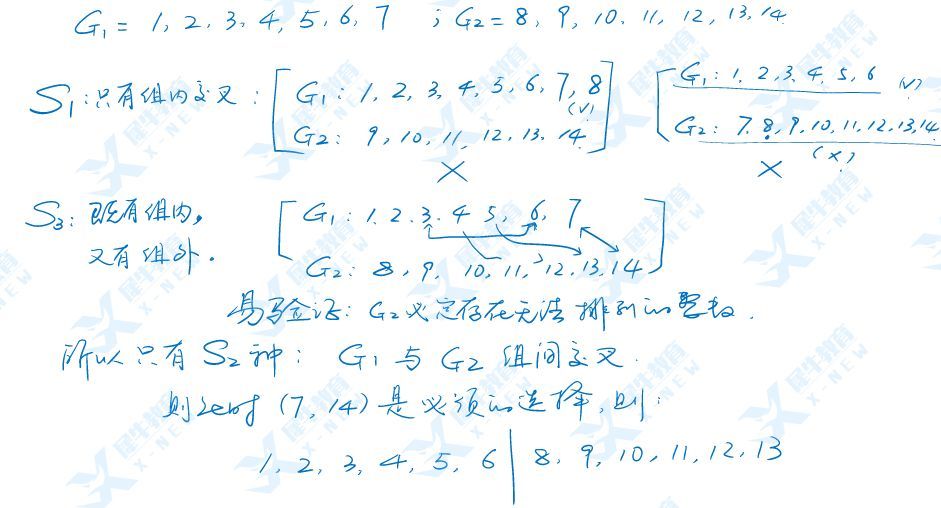 G₁ = 1, 2, 3, 4, 5, 6, 7 ; G₂ = 8, 9, 10, 11, 12, 13, 14
S₁: 只有组内交叉: G₁: 1, 2, 3, 4, 5, 6, 7, 8 G₁: 1, 2, 3, 4, 5, 6 (√)
(√)
G₂: 9, 10, 11, 12, 13, 14 G₂: 7, 8, 9, 10, 11, 12, 13, 14
× × (×)
S₃: 既有组内, G₁: 1, 2, 3, 4, 5, 6, 7
又有组外. G₂: 8, 9, 10, 11, 12, 13, 14
易验证: G₂必定存在无法排列的整数.
所以只有S₂种: G₁与G₂组间交叉.
则此时 (7, 14) 是必须的选择, 则:
1, 2, 3, 4, 5, 6 | 8, 9, 10, 11, 12, 13
犀牛教育
X-NEW